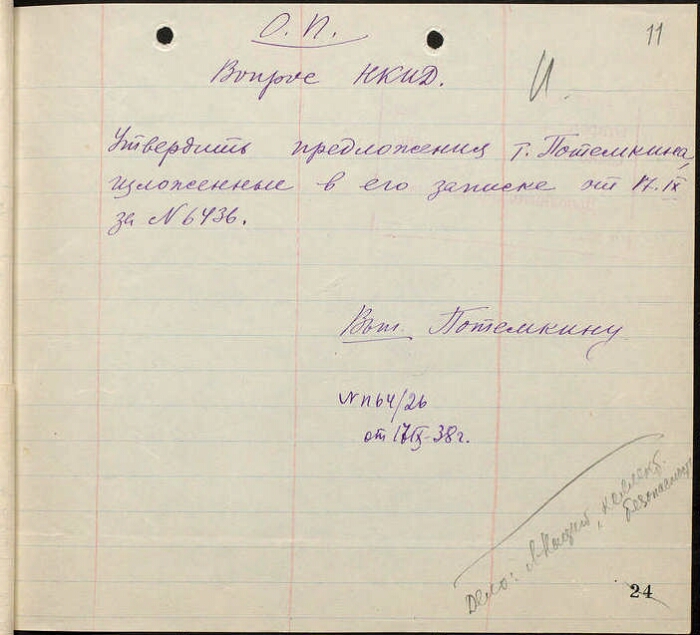 О. П.
11
Вопрос НКИД.
Утвердить предложения т. Потемкина,
изложенные в его записке от 17.IX
за № 6436.
Вып. Потемкину
№ п64/26
от 17/IX-38 г.
Дело:
безопасность
24